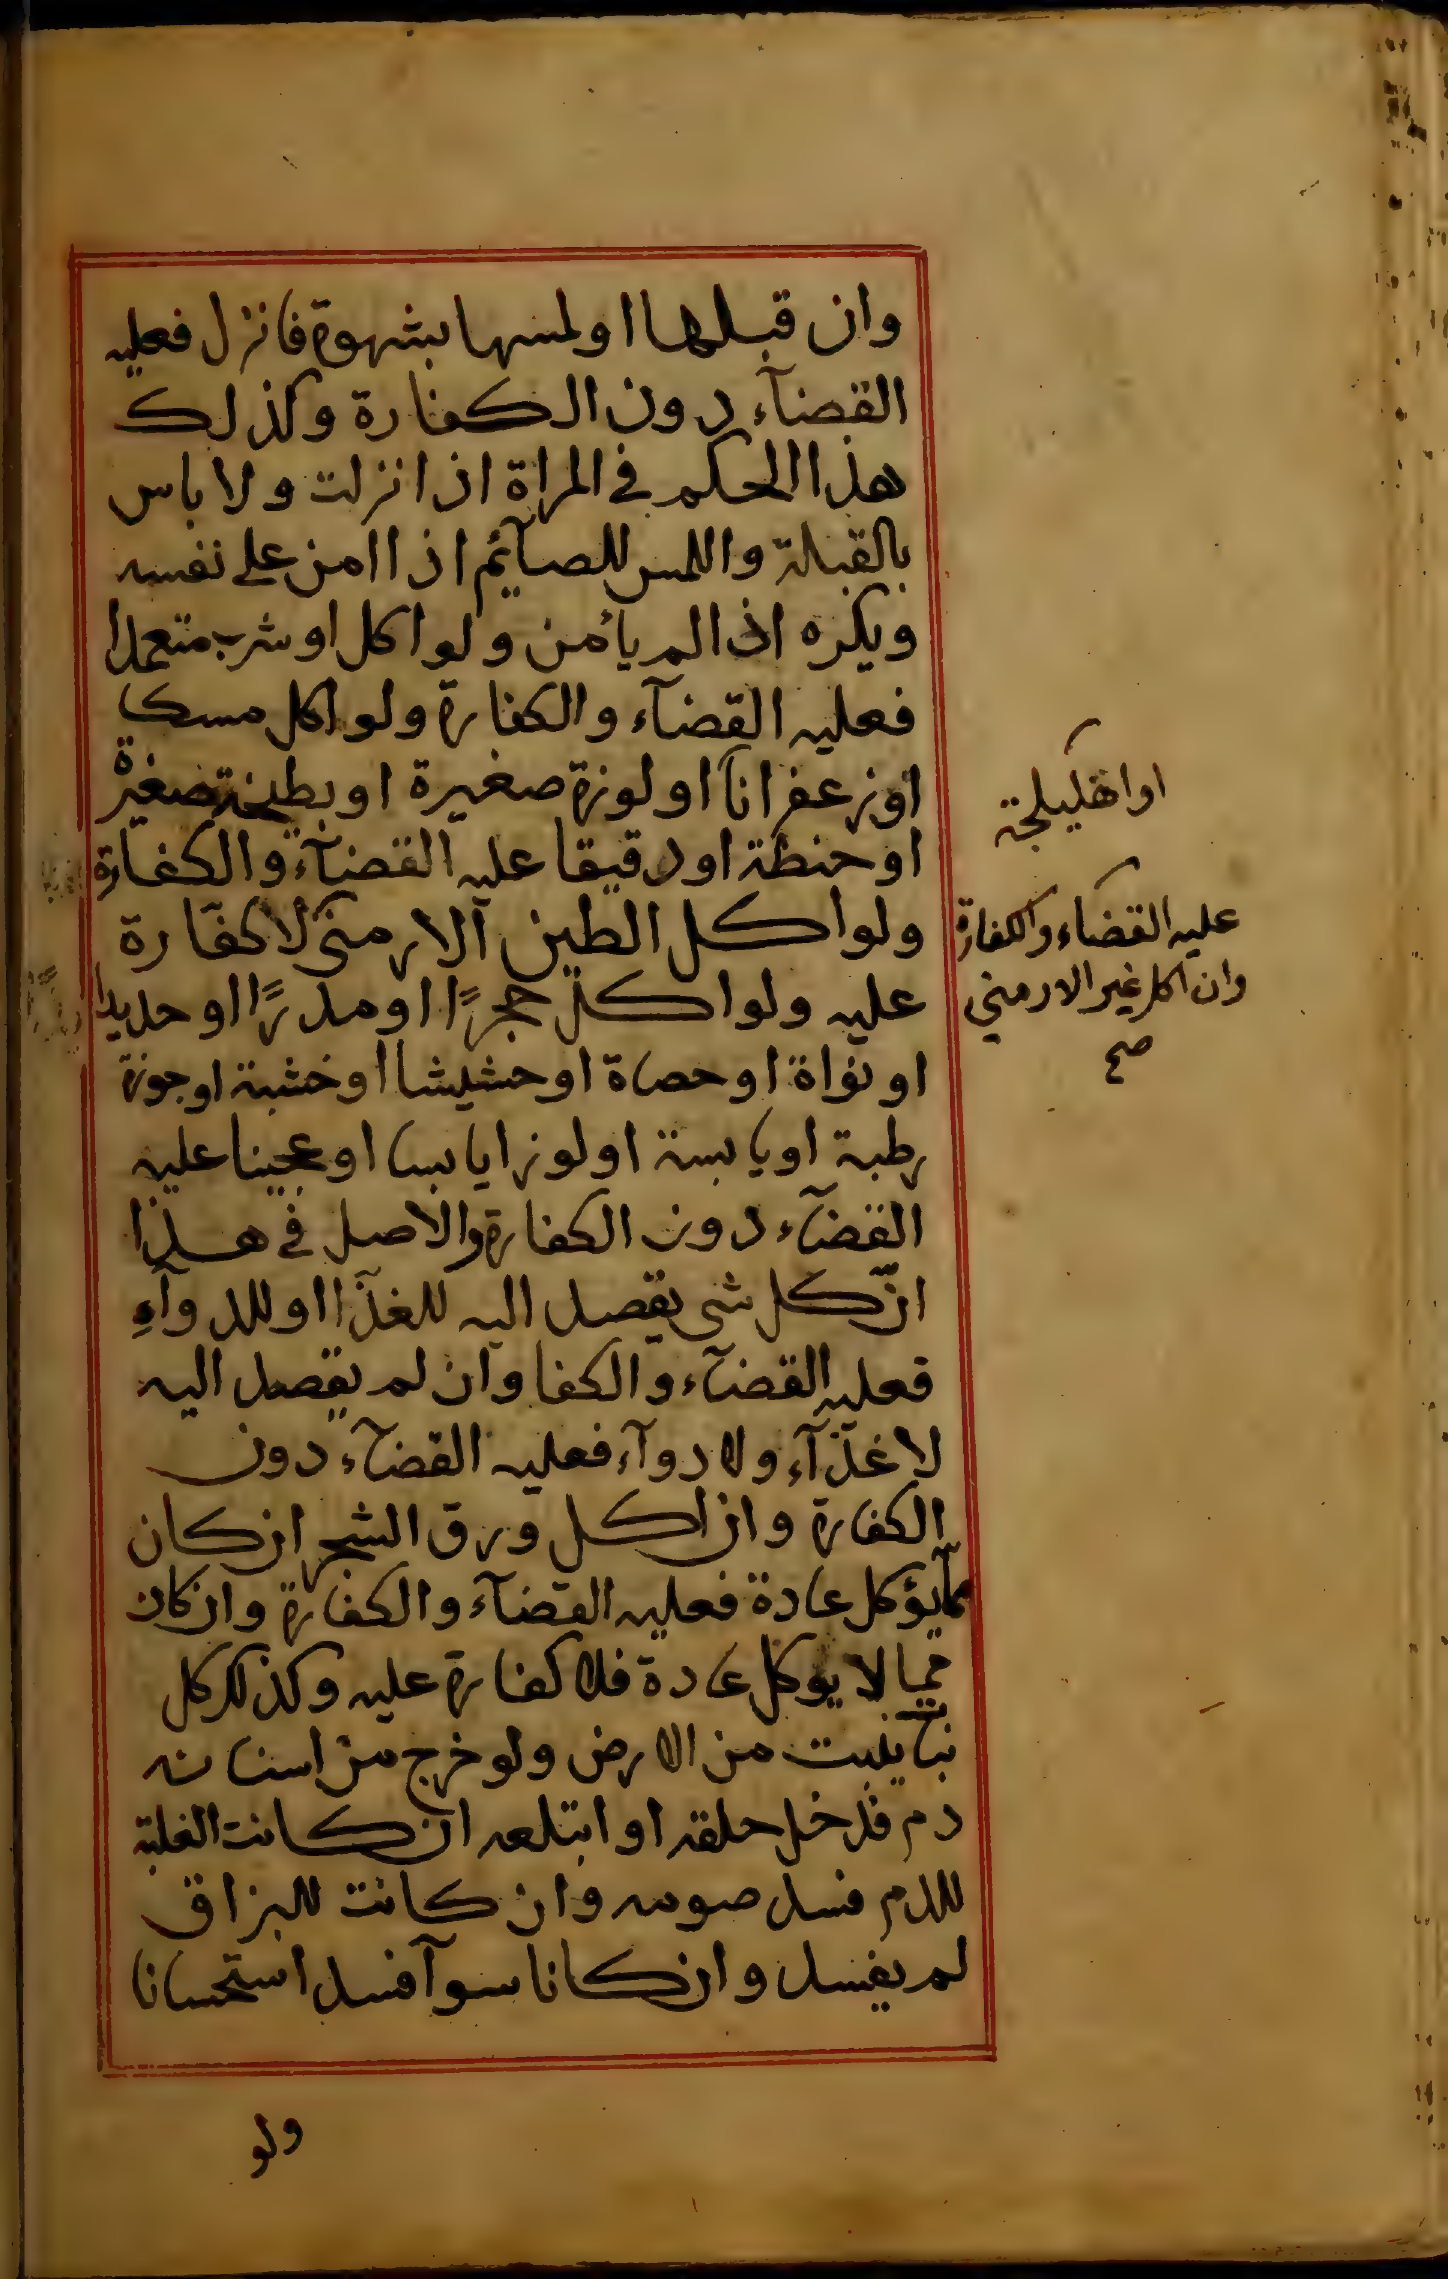 وان قبلها او لمسها بشهوة فانزل فعليه
القضآء دون الكفارة وكذلك
هذا الحكم في المراة اذ انزلت ولا باس
بالقبلة واللمس للصآئم اذا امن على نفسه
ويكره اذا لم يأمن ولو اكل او شرب متعمدا
فعليه القضآء والكفارة ولو اكل مسكا
اوزعفرانا او لوزة صغيرة او بطيخة صغيرة
او اهليلجة
او حنطة او دقيقا عليه القضآء والكفارة
ولو اكل الطين الارمني لا كفارة
عليه القضاء والكفارة
وان اكل غير الارمني
صح
عليه ولو اكل حجرًا او مدرًا او حديدا
او نواة او حصاة او حشيشا او خشبة او جوزة
رطبة او يابسة او لوزا يابسا او عجينا عليه
القضآء دون الكفارة والاصل في هذا
انّ كل شي يقصد اليه للغذآ او للدوآءِ
فعليه القضآء والكفا وان لم يقصد اليه
لا غذآء ولا دوآء فعليه القضآء دون
الكفارة وان اكل ورق الشجر ان كان
مما يؤكل عادة فعليه القضآء والكفارة وان كان
مما لا يوكل عادة فلا كفارة عليه وكذلك كل
نبات ينبت من الارض ولو خرج من اسنانه
دم فدخل حلقه او ابتلعه ان كانت الغلبة
للدم فسد صومه وان كانت للبزاق
لم يفسد وان كانا سوآ فسد استحسانا
ولو